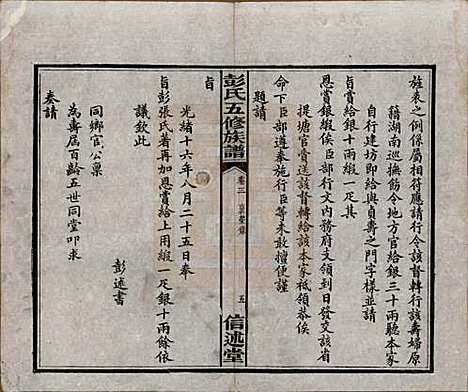 旌表之例係屬相符應請行令該督轉行該壽婦原
籍湖南巡撫飭令地方官給銀三十兩聽本家
自行建坊即給與貞壽之門字樣並請
貞賞給銀十兩緞一疋其
恩賞銀緞俟臣部行文内務府支領到日發交該省
提塘官賫送該督轉給該本家祇領恭俟
命下臣部遵奉施行臣等未敢擅便謹
題請
彭氏五修族譜
卷三
五
信述堂
旨
光緒十六年八月二十五日奉
旨彭張氏著再加恩賞給上用緞一疋銀十兩餘依
議欽此
同鄉官公稟
為壽届百齡五世同堂叩求
奏請
彭述書